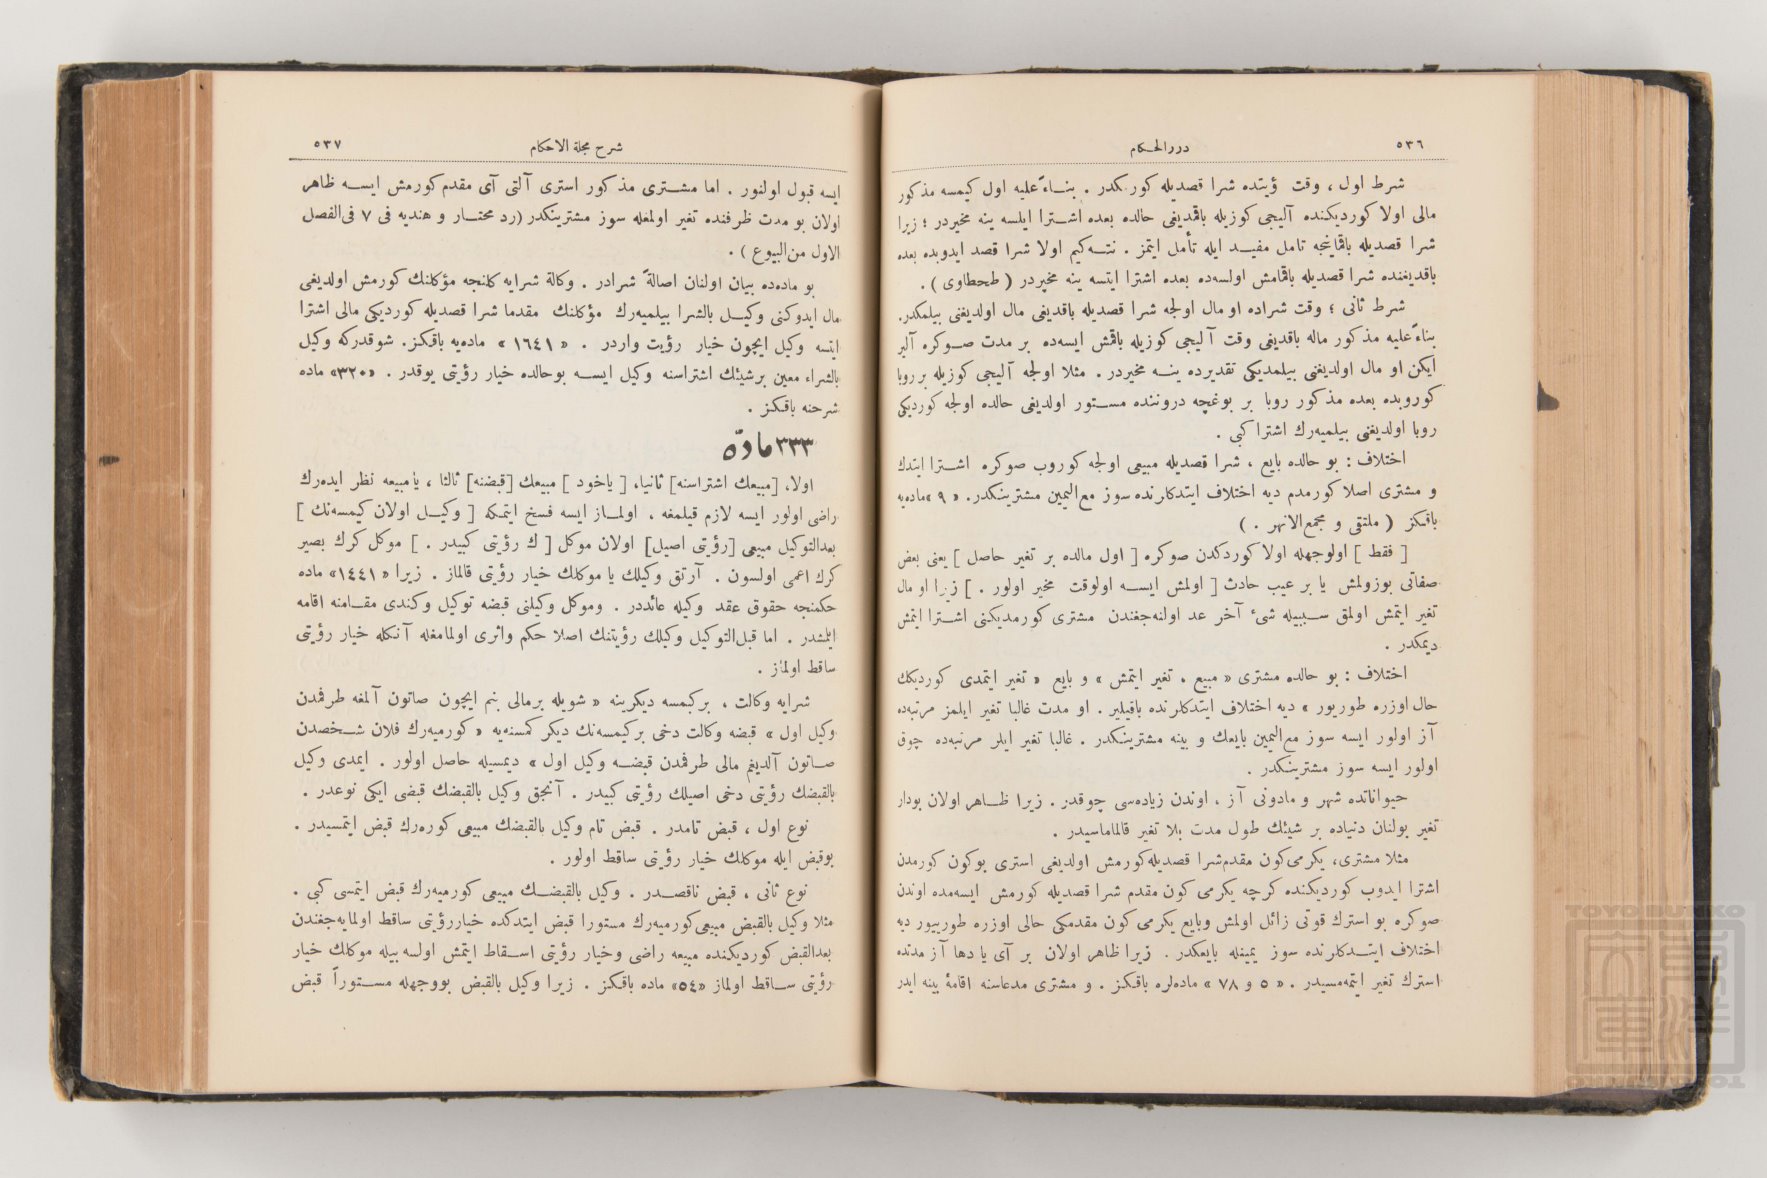 ٥٣٦
دررالحكام
شرط اول ، وقت رؤيتده شرا قصديله كورمكدر . بناءً عليه اول كيمسه مذكور
مالى اولا كورديكنده آليجى كوزيله باقمديغى حالده بعده اشترا ايلسه ينه مخيردر ؛ زيرا
شرا قصديله باقماينجه تامل مفيد ايله تأمل ايتمز . نته‌كيم اولا شرا قصد ايدوبده بعده
باقديغنده شرا قصديله باقمامش اولسه‌ده بعده اشترا ايتسه ينه مخيردر ( طحطاوى ) .
شرط ثانى ؛ وقت شراده او مال اولجه شرا قصديله باقديغى مال اولديغنى بيلمكدر.
بناءً عليه مذكور ماله باقديغى وقت آليجى كوزيله باقمش ايسه‌ده بر مدت صوكره آلير
ايكن او مال اولديغنى بيلمديكى تقديرده ينه مخيردر . مثلا اولجه آليجى كوزيله بر روبا
كوروبده بعده مذكور روبا بر بوغچه دروننده مستور اولديغى حالده اولجه كورديكى
روبا اولديغنى بيلميه‌رك اشترا كبى .
اختلاف : بو حالده بايع ، شرا قصديله مبيعى اولجه كوروب صوكره اشترا ايتدك
و مشترى اصلا كورمدم ديه اختلاف ايتدكلرنده سوز مع‌اليمين مشترينكدر. « ٩ »ماده‌يه
باقكز ( ملتقى و مجمع‌الانهر . )
[ فقط ] اولوجهله اولا كوردكدن صوكره [ اول مالده بر تغير حاصل ] يعنى بعض
صفاتى بوزولمش يا بر عيب حادث [ اولمش ايسه اولوقت مخير اولور . ] زيرا او مال
تغير ايتمش اولمق سببيله شئ آخر عد اولنه‌جغندن مشترى كورمديكنى اشترا ايتمش
ديمكدر .
اختلاف : بو حالده مشترى « مبيع ، تغير ايتمش » و بايع « تغير ايتمدى كورديكك
حال اوزره طوريور » ديه اختلاف ايتدكلرنده باقيلير . او مدت غالبا تغير ايلمز مرتبه‌ده
آز اولور ايسه سوز مع‌اليمين بايعك و بينه مشترينكدر . غالبا تغير ايلر مرتبه‌ده چوق
اولور ايسه سوز مشترينكدر .
حيواناتده شهر و مادونى آز ، اوندن زياده‌سى چوقدر . زيرا ظاهر اولان بودار
تغير بولنان دنياده بر شيئك طول مدت بلا تغير قالماماسيدر .
مثلا مشترى، يكرمى‌كون مقدم‌شرا قصديله‌كورمش اولديغى استرى بوكون كورمدن
اشترا ايدوب كورديكنده كرچه يكرمى كون مقدم شرا قصديله كورمش ايسه‌مده اوندن
صوكره بو استرك قوتى زائل اولمش وبايع يكرمى كون مقدمكى حالى اوزره طورييور ديه
اختلاف ايتدكلرنده سوز يمينله بايعكدر . زيرا ظاهر اولان بر آى يا دها آز مدتده
استرك تغير ايتمه‌مسيدر . « ٥ و ٧٨ » ماده‌لره باقكز . و مشترى مدعاسنه اقامهٔ بينه ايدر
٥٣٧
شرح مجلة الاحكام
ايسه قبول اولنور . اما مشترى مذكور استرى آلتى آى مقدم كورمش ايسه ظاهر
اولان بو مدت ظرفنده تغير اولمغله سوز مشترينكدر (رد مختار و هنديه فى ٧ فى‌الفصل
الاول من‌البيوع ) .
بو ماده‌ده بيان اولنان اصالةً شرادر . وكالة شرايه كلنجه مؤكلنك كورمش اولديغى
مال ايدوكنى وكيل بالشرا بيلميه‌رك مؤكلنك مقدما شرا قصديله كورديكى مالى اشترا
ايتسه وكيل ايچون خيار رؤيت واردر . « ١٦٤١ » ماده‌يه باقكز. شوقدركه وكيل
بالشراء معين برشيئك اشتراسنه وكيل ايسه بوحالده خيار رؤيتى يوقدر . «٣٢٠» ماده
شرحنه باقكز .
٣٣٣ مادّه
اولا، [مبيعك اشتراسنه] ثانيا، [ ياخود ] مبيعك [قبضنه] ثالثا ، يا مبيعه نظر ايده‌رك
راضى اولور ايسه لازم قيلمغه ، اولماز ايسه فسخ ايتمكه [ وكيل اولان كيمسه‌نك ]
بعدالتوكيل مبيعى [رؤيتى اصيل] اولان موكل [ ك رؤيتى كبيدر . ] موكل كرك بصير
كرك اعمى اولسون . آرتق وكيلك يا موكلك خيار رؤيتى قالماز . زيرا « ١٤٤١» ماده
حكمنجه حقوق عقد وكيله عائددر . وموكل وكيلنى قبضه توكيل وكندى مقامنه اقامه
ايلمشدر . اما قبل‌التوكيل وكيلك رؤيتنك اصلا حكم واثرى اولمامغله آنكله خيار رؤيتى
ساقط اولماز .
شرايه وكالت ، بركيمسه ديكرينه « شويله برمالى بنم ايچون صاتون آلمغه طرفمدن
وكيل اول » قبضه وكالت دخى بركيمسه‌نك ديكر كمسنه‌يه « كورميه‌رك فلان شخصدن
صاتون آلديغم مالى طرفمدن قبضه وكيل اول » ديمسيله حاصل اولور . ايمدى وكيل
بالقبضك رؤيتى دخى اصيلك رؤيتى كبيدر . آنجق وكيل بالقبضك قبضى ايكى نوعدر .
نوع اول ، قبض تامدر . قبض تام وكيل بالقبضك مبيعى كوره‌رك قبض ايتمسيدر .
بوقبض ايله موكلك خيار رؤيتى ساقط اولور .
نوع ثانى ، قبض ناقصدر . وكيل بالقبضك مبيعى كورميه‌رك قبض ايتمسى كبى .
مثلا وكيل بالقبض مبيعى‌كورميه‌رك مستورا قبض ايتدكده خياررؤيتى ساقط اولمايه‌جغندن
بعدالقبض كورديكنده مبيعه راضى وخيار رؤيتى اسقاط ايتمش اولسه بيله موكلك خيار
رؤيتى ساقط اولماز «٥٤» ماده باقكز . زيرا وكيل بالقبض بووجهله مستوراً قبض